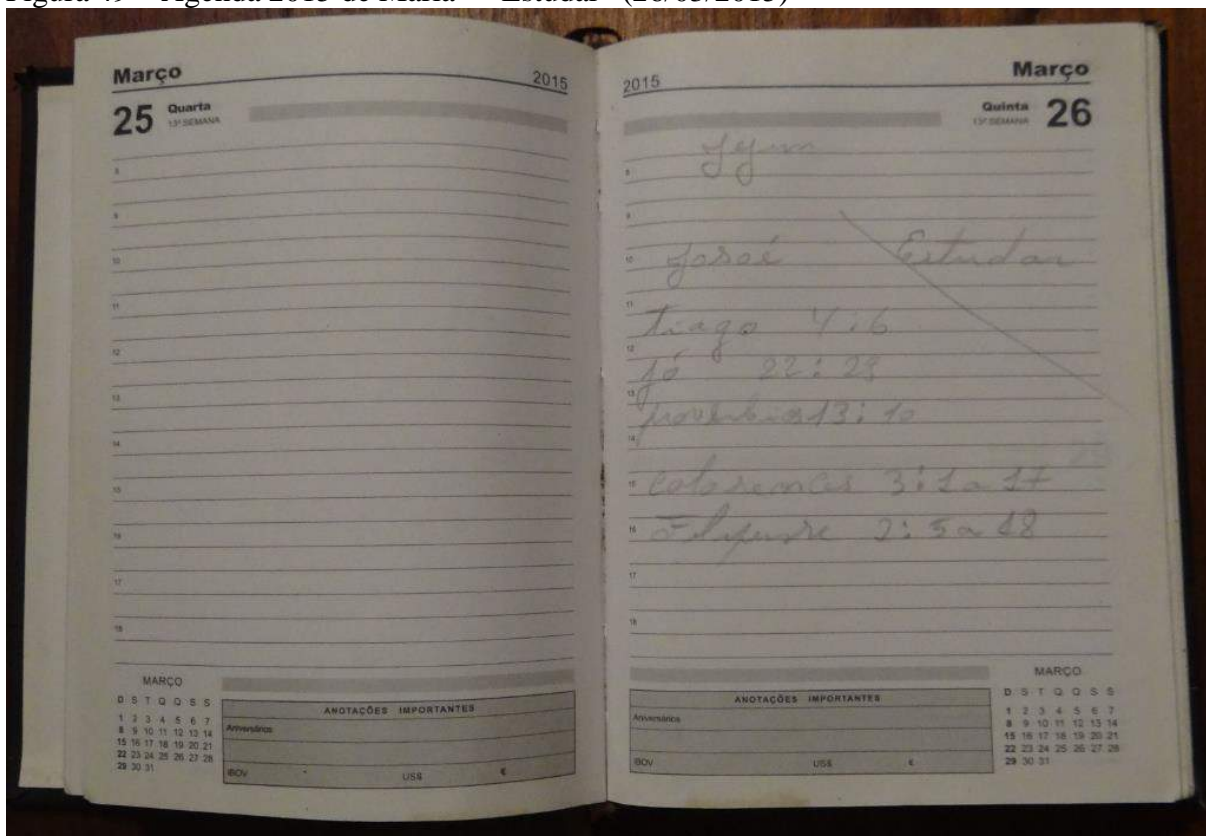 Março 2015
25 Quarta
13ª SEMANA
8
9
10
11
12
13
14
15
16
17
18
MARÇO
D S T Q Q S S
1 2 3 4 5 6 7
8 9 10 11 12 13 14
15 16 17 18 19 20 21
22 23 24 25 26 27 28
29 30 31
ANOTAÇÕES IMPORTANTES
Aniversários
IBOV US$ €
2015 Março
Quinta 26
13ª SEMANA
8 Jejum
9
10 Josoé Estudar
11 Tiago 4:6
12 Jó 22:29
13 proverbios 13:10
14
15 colosences 3:1 a 17
16 2:5 a 18
17
18
ANOTAÇÕES IMPORTANTES
Aniversários
IBOV US$ €
MARÇO
D S T Q Q S S
1 2 3 4 5 6 7
8 9 10 11 12 13 14
15 16 17 18 19 20 21
22 23 24 25 26 27 28
29 30 31